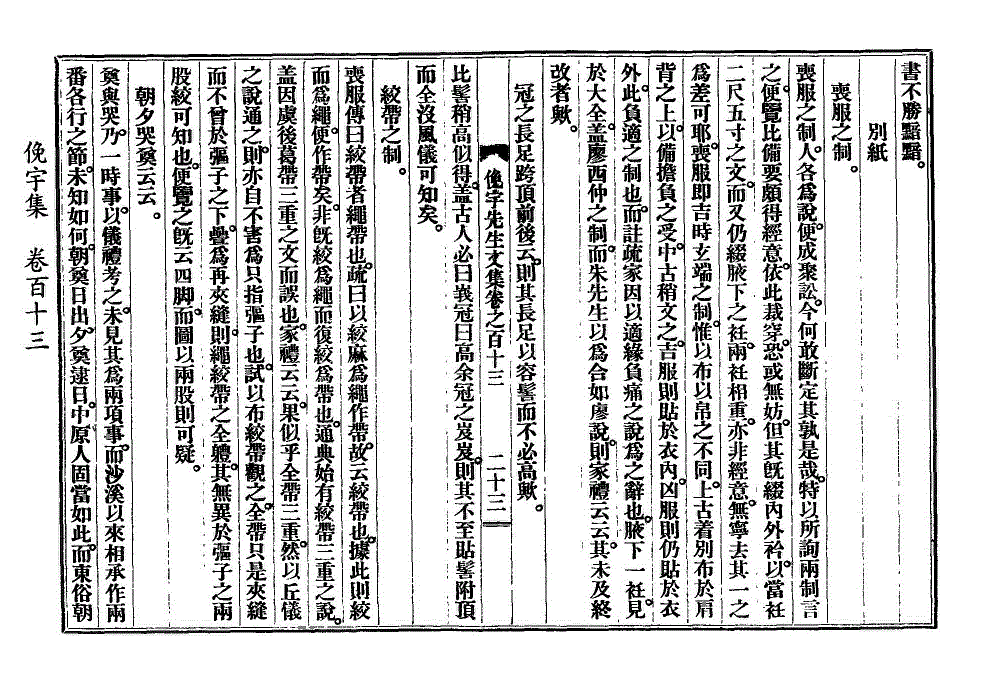 書不勝黯黯。
別紙
喪服之制。
喪服之制。人各爲說。便成聚訟。今何敢斷定其孰是哉。特以所詢兩制言
之。便覽比備要頗得經意。依此裁穿。恐或無妨。但其旣綴內外衿。以當衽
二尺五寸之文。而又仍綴腋下之衽。兩衽相重。亦非經意。無寧去其一之
爲差可耶。喪服卽吉時玄端之制。惟以布以帛之不同。上古着別布於肩
背之上。以備擔負之受。中古稍文之。吉服則貼於衣內。凶服則仍貼於衣
外。此負適之制也。而註疏家因以適緣負痛之說。爲之辭也。腋下一衽。見
於大全。盖廖西仲之制。而朱先生以爲合如廖說。則家禮云云。其未及終
改者歟。
冠之長足跨頂前後云。則其長足以容髻而不必高歟。
俛宇先生文集卷之百十三
二十三
比髻稍高似得。盖古人必曰峩冠。曰高余冠之岌岌。則其不至貼髻附頂
而全沒風儀可知矣。
絞帶之制。
喪服傳曰絞帶者繩帶也。疏曰以絞麻爲繩作帶。故云絞帶也。據此則絞
而爲繩。便作帶矣。非旣絞爲繩而復絞爲帶也。通典始有絞帶三重之說。
盖因虞後葛帶三重之文而誤也。家禮云云。果似乎全帶三重。然以丘儀
之說通之。則亦自不害爲只指彄子也。試以布絞帶觀之。全帶只是夾縫
而不曾於彄子之下。疊爲再夾縫。則繩絞帶之全體。其無異於彄子之兩
股絞可知也。便覽之旣云四脚。而圖以兩股則可疑。
朝夕哭奠云云。
奠與哭。乃一時事。以儀禮考之。未見其爲兩項事。而沙溪以來相承作兩
番各行之節。未知如何。朝奠日出。夕奠逮日。中原人固當如此。而東俗朝
俛宇集 卷百十三